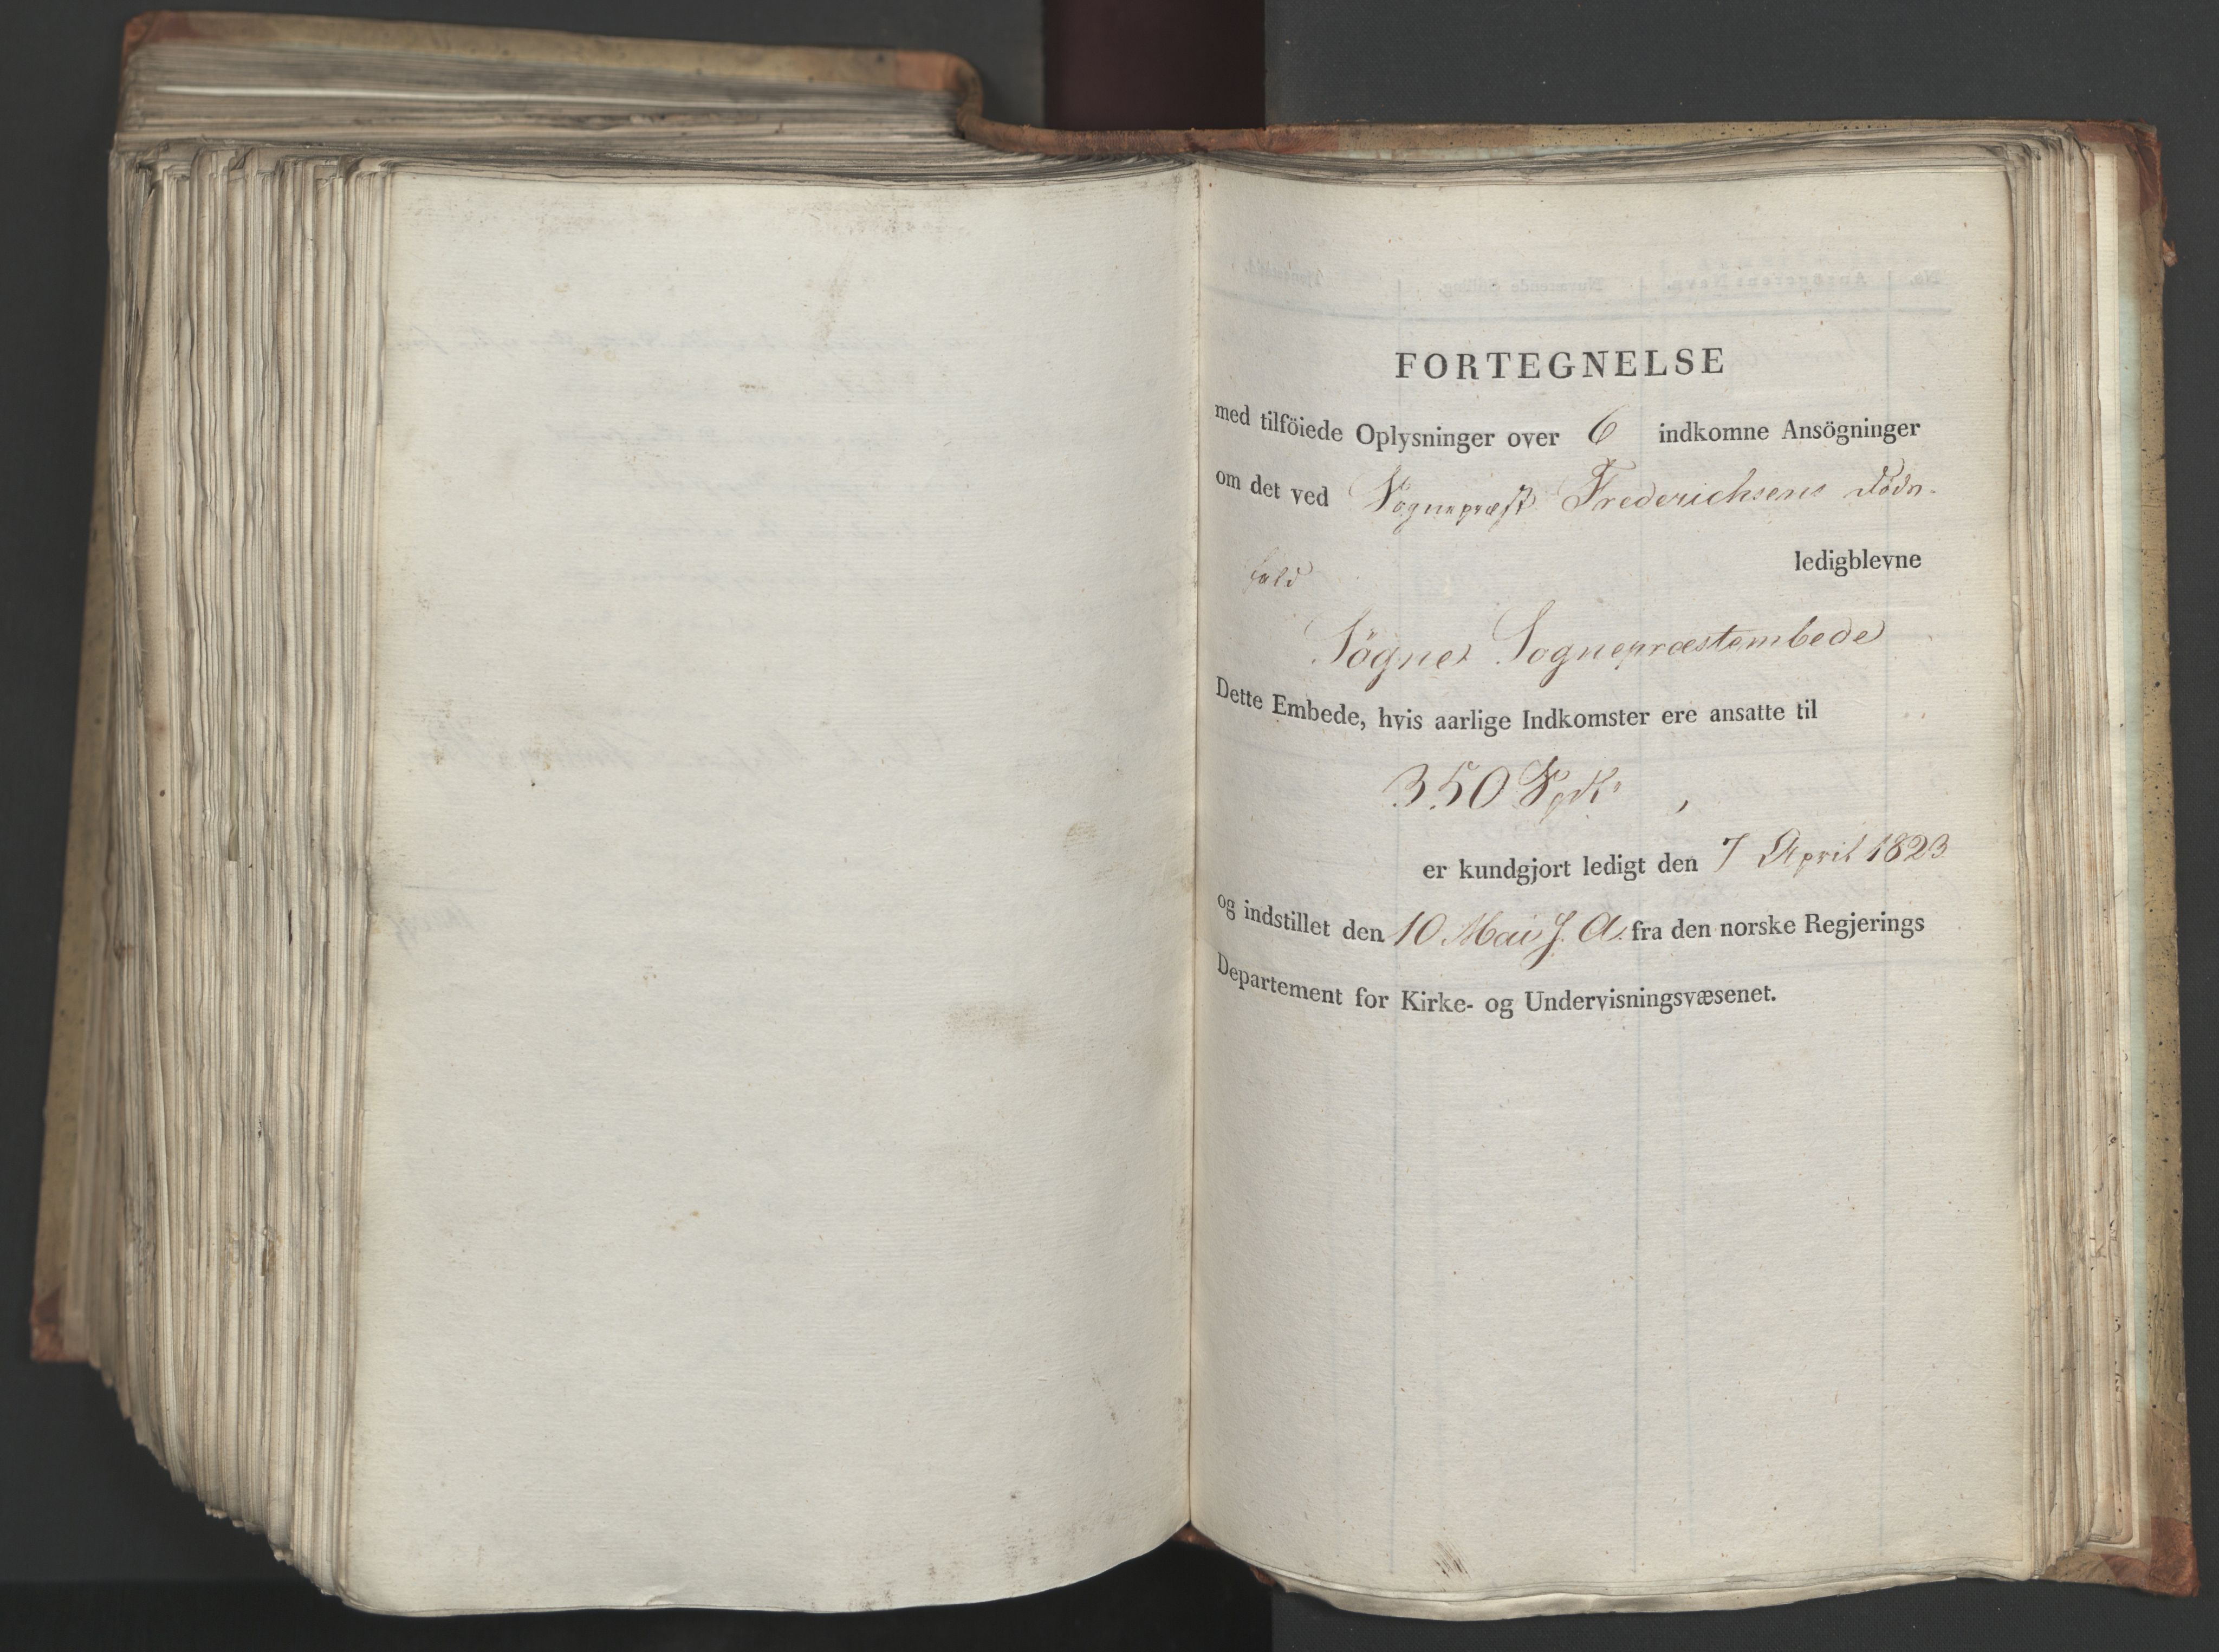 FORTEGNELSE
med tilföiede Oplysninger over 6 indkomne Ansögninger
om det ved Sognepræst Frederichsens Döds-
fald ledigblevne
Sögne Sognepræstembede
Dette Embede, hvis aarlige Indkomster ere ansatte til
350 Spd.,
er kundgjort ledigt den 7 April 1823
og indstillet den 10 Mai s. A. fra den norske Regjerings
Departement for Kirke- og Undervisningsvæsenet.